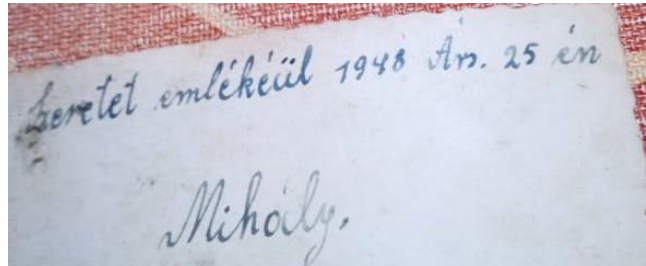 Szeretet emlékéül 1948 Árs. 25 én
Mihály.